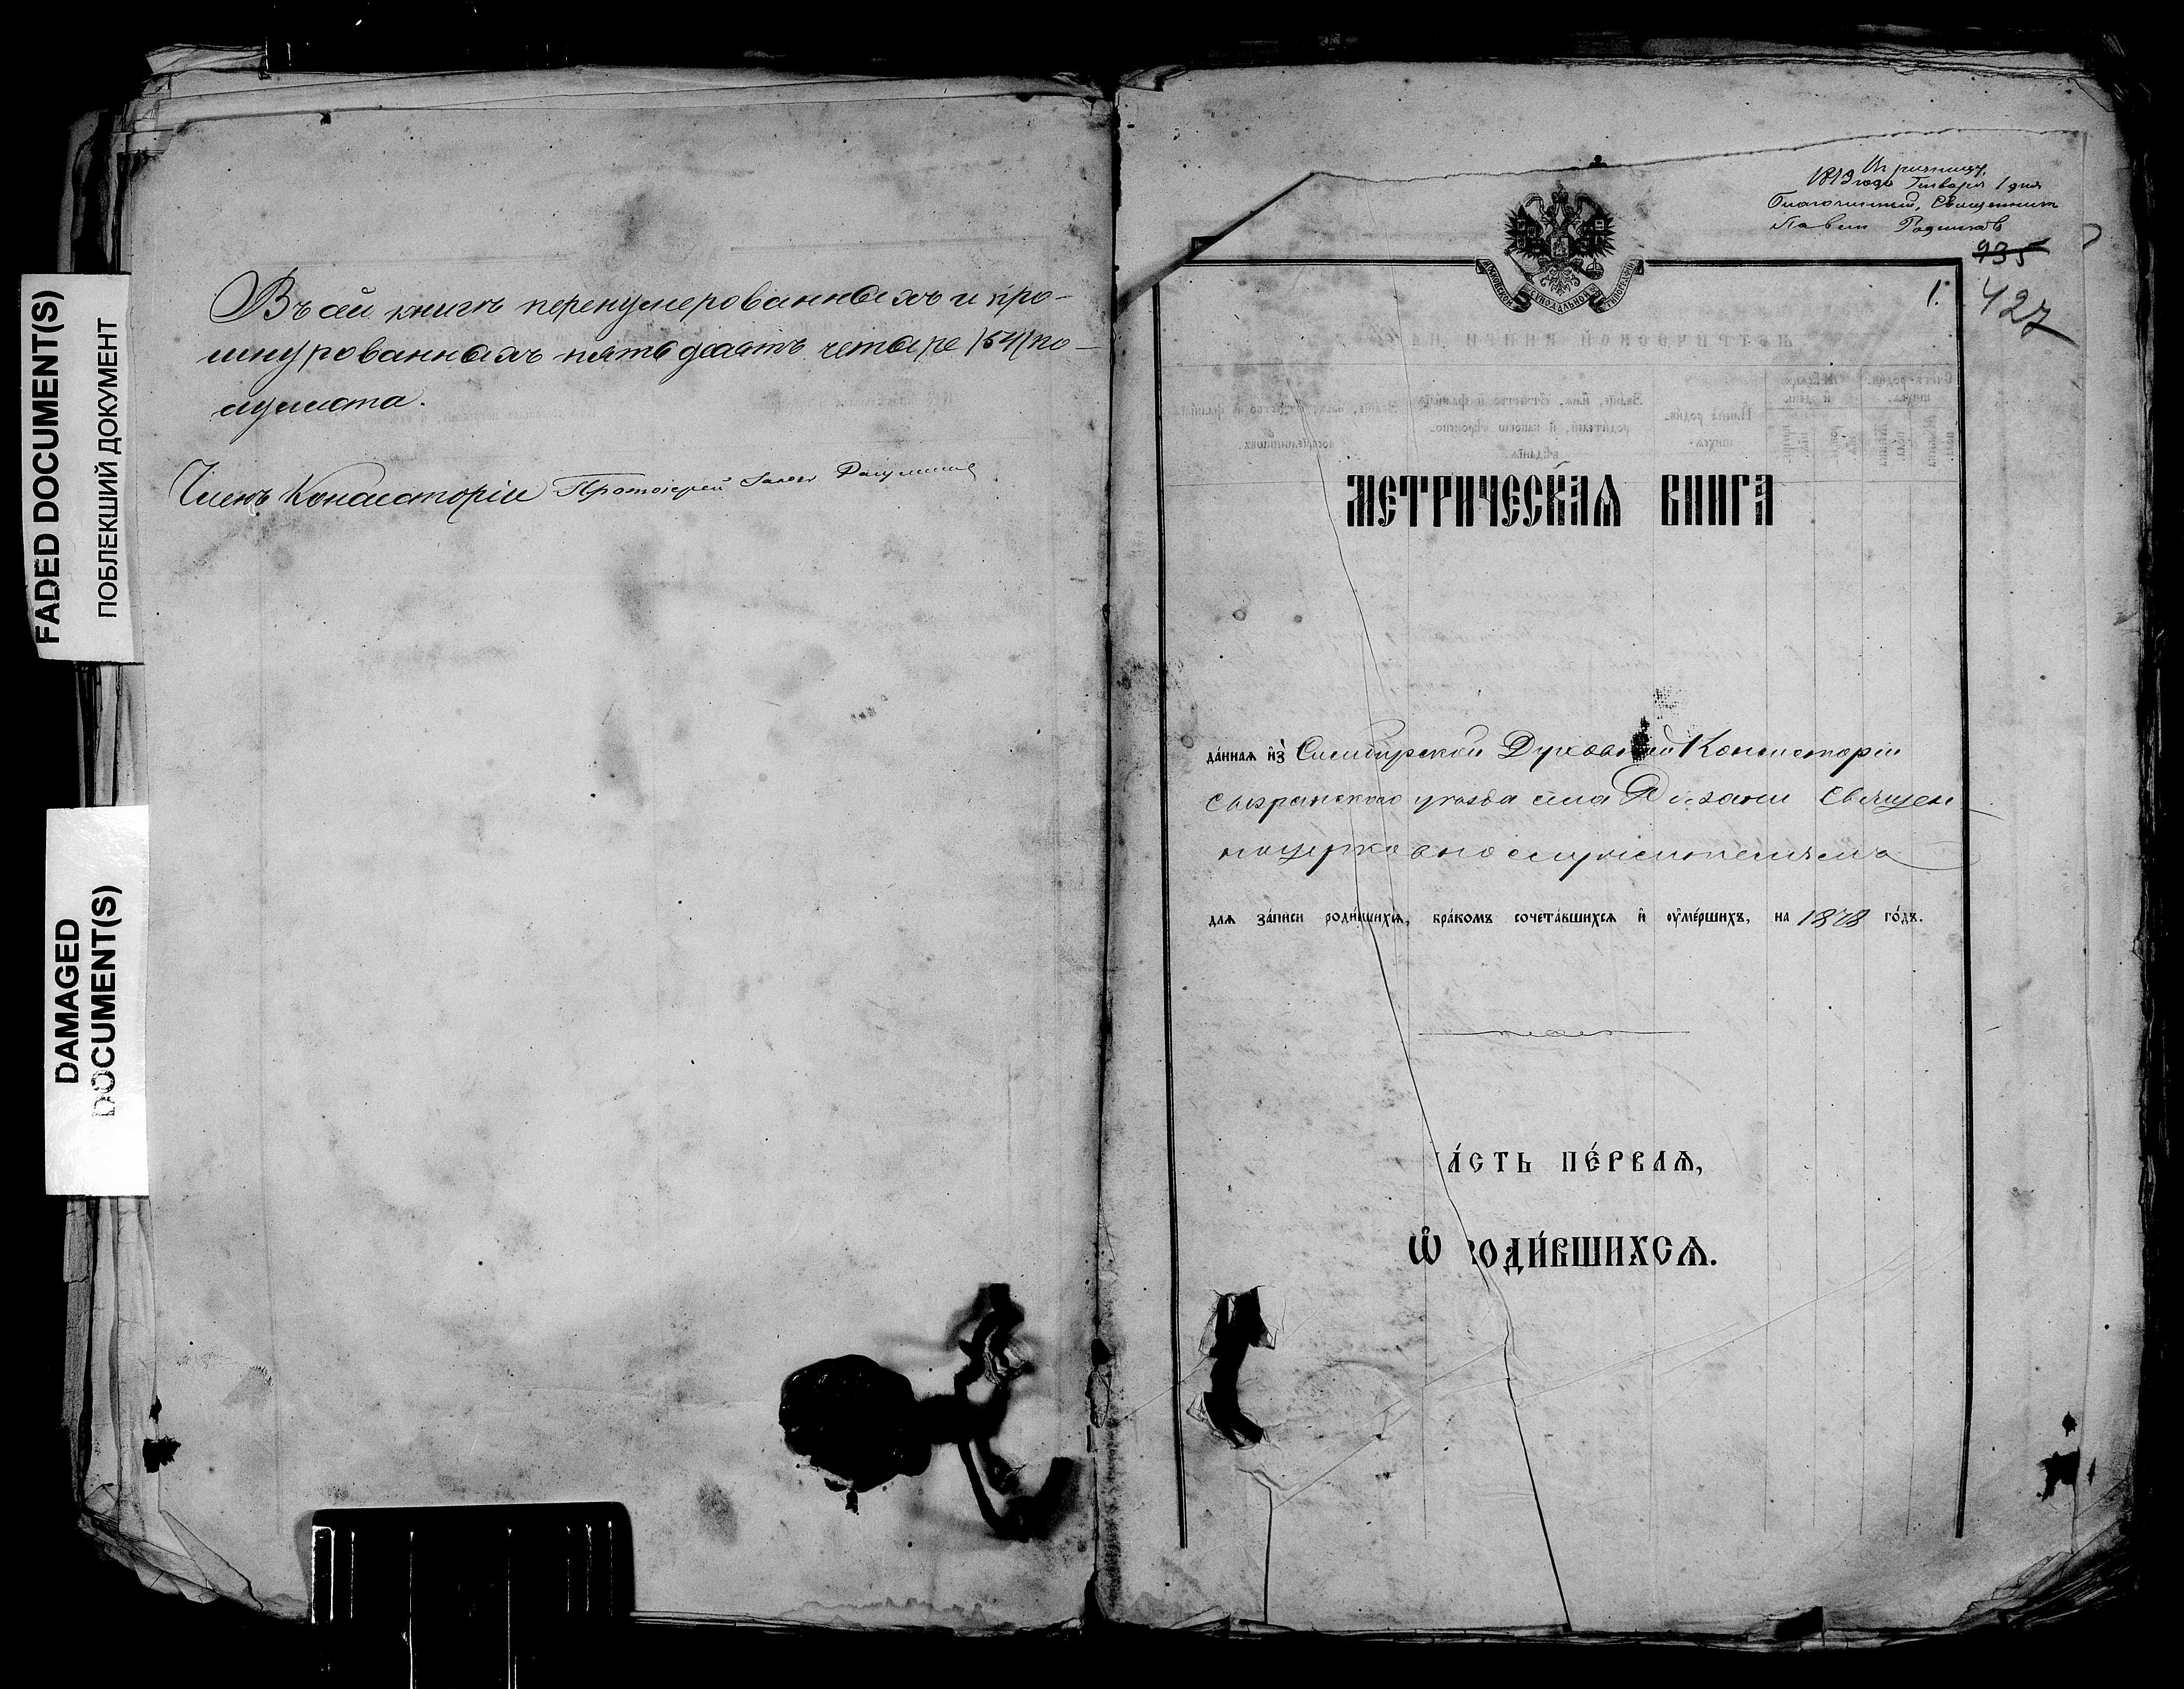 FADED DOCUMENT(S)
ПОБЛЕКШИЙ ДОКУМЕНТ
DAMAGED
DOCUMENT(S)
Въ сей книгѣ перенумерованныхъ и про-
шнурованныхъ пятьдесятъ четыре /54/ по-
лулиста.
Членъ Консисторіи Протоіерей
года Января 1 дня
Благочинный, Священникъ
Павелъ Родниковъ
935
427
1.
МОСКОВСКОЙ СѴНОДАЛЬНОЙ ТИПОГРАФІИ
МЕТРИЧЕСКАѦ КНИГА
да́ннаѧ и҆з̾ Симбирской Духовной Консисторіи
Сызранскаго уѣзда села Рѣзани Священ-
ноцерковнослужителямъ
длѧ за́писи роди́вшихсѧ, бра́комъ сочета́вшихсѧ и҆ ѹ҆ме́ршихъ, на 1878 го́дъ.
А́СТЬ ПЕ́РВАѦ,
Ѡ҆ РОДИ́ВШИХСѦ.